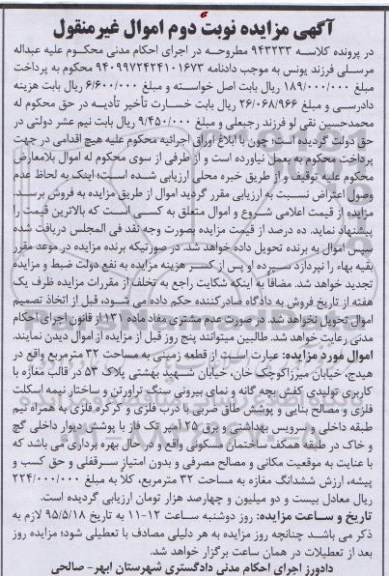 آگهی مزایده نوبت دوم اموال غیرمنقول
در پرونده کلاسه ۹۴۳۲۳۳ مطروحه در اجرای احکام مدنی محکوم علیه عبداله
مرسلی فرزند یونس به موجب دادنامه ۹۴۰۹۹۷۲۴۲۴۱۰۱۶۷۳ محکوم به پرداخت
مبلغ ۱۸۹/۰۰۰/۰۰۰ ریال بابت اصل خواسته و مبلغ ۶/۶۰۰/۰۰۰ ریال بابت هزینه
دادرسی و مبلغ ۲۶/۰۶۸/۹۶۶ ریال بابت خسارت تأخیر تأدیه در حق محکوم له
محمدحسین نقی لو فرزند رجبعلی و مبلغ ۹/۴۵۰/۰۰۰ ریال بابت نیم عشر دولتی در
حق دولت گردیده است؛ چون با ابلاغ اوراق اجرائیه محکوم علیه هیچ اقدامی در جهت
پرداخت محکوم به بعمل نیاورده است و از طرفی از سوی محکوم له اموال بلامعارض
محکوم علیه توقیف و از طریق خبره محلی ارزیابی شده است؛ اینک به لحاظ عدم
وصول اعتراض نسبت به ارزیابی مقرر گردید اموال از طریق مزایده به فروش برسد.
مزایده از قیمت اعلامی شروع و اموال متعلق به کسی است که بالاترین قیمت را
پیشنهاد نماید. ده درصد از قیمت مزایده بصورت وجه نقد فی المجلس دریافت شده
سپس اموال به برنده تحویل داده خواهد شد. در صورتیکه برنده مزایده در موعد مقرر
بقیه بهاء را نپردازد سپرده او پس از کسر هزینه مزایده به نفع دولت ضبط و مزایده
تجدید خواهد شد. مضافاً به اینکه شکایت راجع به تخلف از مقررات مزایده ظرف یک
هفته از تاریخ فروش به دادگاه صادرکننده حکم داده می شود، قبل از اتخاذ تصمیم
اموال تحویل نخواهد شد. در صورت عدم مشتری مفاد ماده ۱۳۱ از قانون اجرای احکام
مدنی رعایت خواهد شد. طالبین میتوانند پنج روز قبل از مزایده از اموال دیدن نمایند.
اموال مورد مزایده: عبارت است از قطعه زمینی به مساحت ۳۲ مترمربع واقع در
هیدج، خیابان میرزاکوچک خان، خیابان شهید بهشتی پلاک ۵۳ در قالب مغازه با
کاربری تولیدی کفش بچه گانه و نمای بیرونی سنگ تراورتن و ساختار نیمه اسکلت
فلزی و مصالح بنایی و پوشش طاق ضربی با درب فلزی و کرکره فلزی به همراه نیم
طبقه داخلی و سرویس بهداشتی و برق ۲۵ آمپر تک فاز با پوشش دیوار داخلی گچ
و خاک در طبقه همکف ساختمان مسکونی واقع و در حال بهره برداری می باشد که
با عنایت به موقعیت مکانی و مصالح مصرفی و بدون امتیاز سرقفلی و حق کسب و
پیشه، ارزش ششدانگ مغازه به مساحت ۳۲ مترمربع، کلاً به مبلغ ۲۲۴/۰۰۰/۰۰۰
ریال معادل بیست و دو میلیون و چهارصد هزار تومان ارزیابی گردیده است.
تاریخ و ساعت مزایده: روز دوشنبه ساعت ۱۲-۱۱ به تاریخ ۹۵/۵/۱۸ لازم به
ذکر می باشد چنانچه روز مزایده به هر دلیلی مصادف با تعطیلی شود؛ مزایده روز
بعد از تعطیلات در همان ساعت برگزار خواهد شد.
دادورز اجرای احکام مدنی دادگستری شهرستان ابهر- صالحی